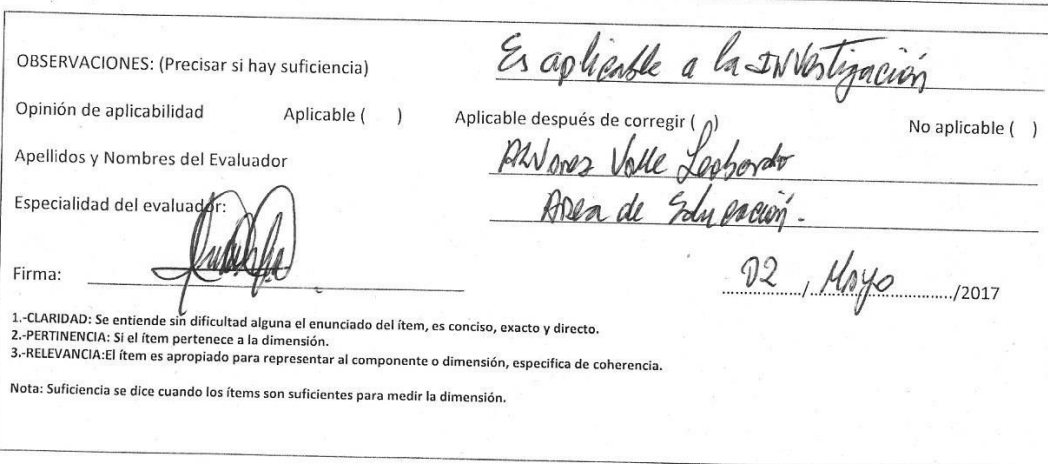 OBSERVACIONES: (Precisar si hay suficiencia) Es aplicable a la INVestigación
Opinión de aplicabilidad Aplicable ( ) Aplicable después de corregir ( ) No aplicable ( )
Apellidos y Nombres del Evaluador Alvarez Valle Leobardo
Especialidad del evaluador: Area de Educación.
Firma: 02 / Mayo /2017
1.-CLARIDAD: Se entiende sin dificultad alguna el enunciado del ítem, es conciso, exacto y directo.
2.-PERTINENCIA: Si el ítem pertenece a la dimensión.
3.-RELEVANCIA:El ítem es apropiado para representar al componente o dimensión, especifica de coherencia.
Nota: Suficiencia se dice cuando los ítems son suficientes para medir la dimensión.